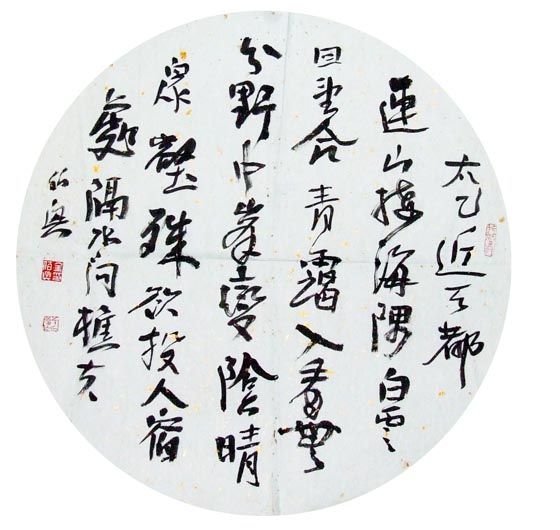 太乙近天都
連山接海隅白雲
回望合青靄入看無
分野中峯變陰晴
眾壑殊欲投人宿
處隔水问樵夫
伯興